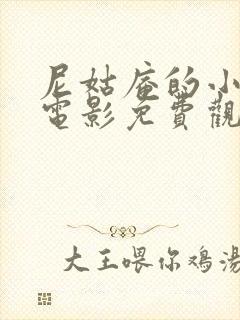 尼姑庵的小
電影免費觀
大王喂你鸡湯